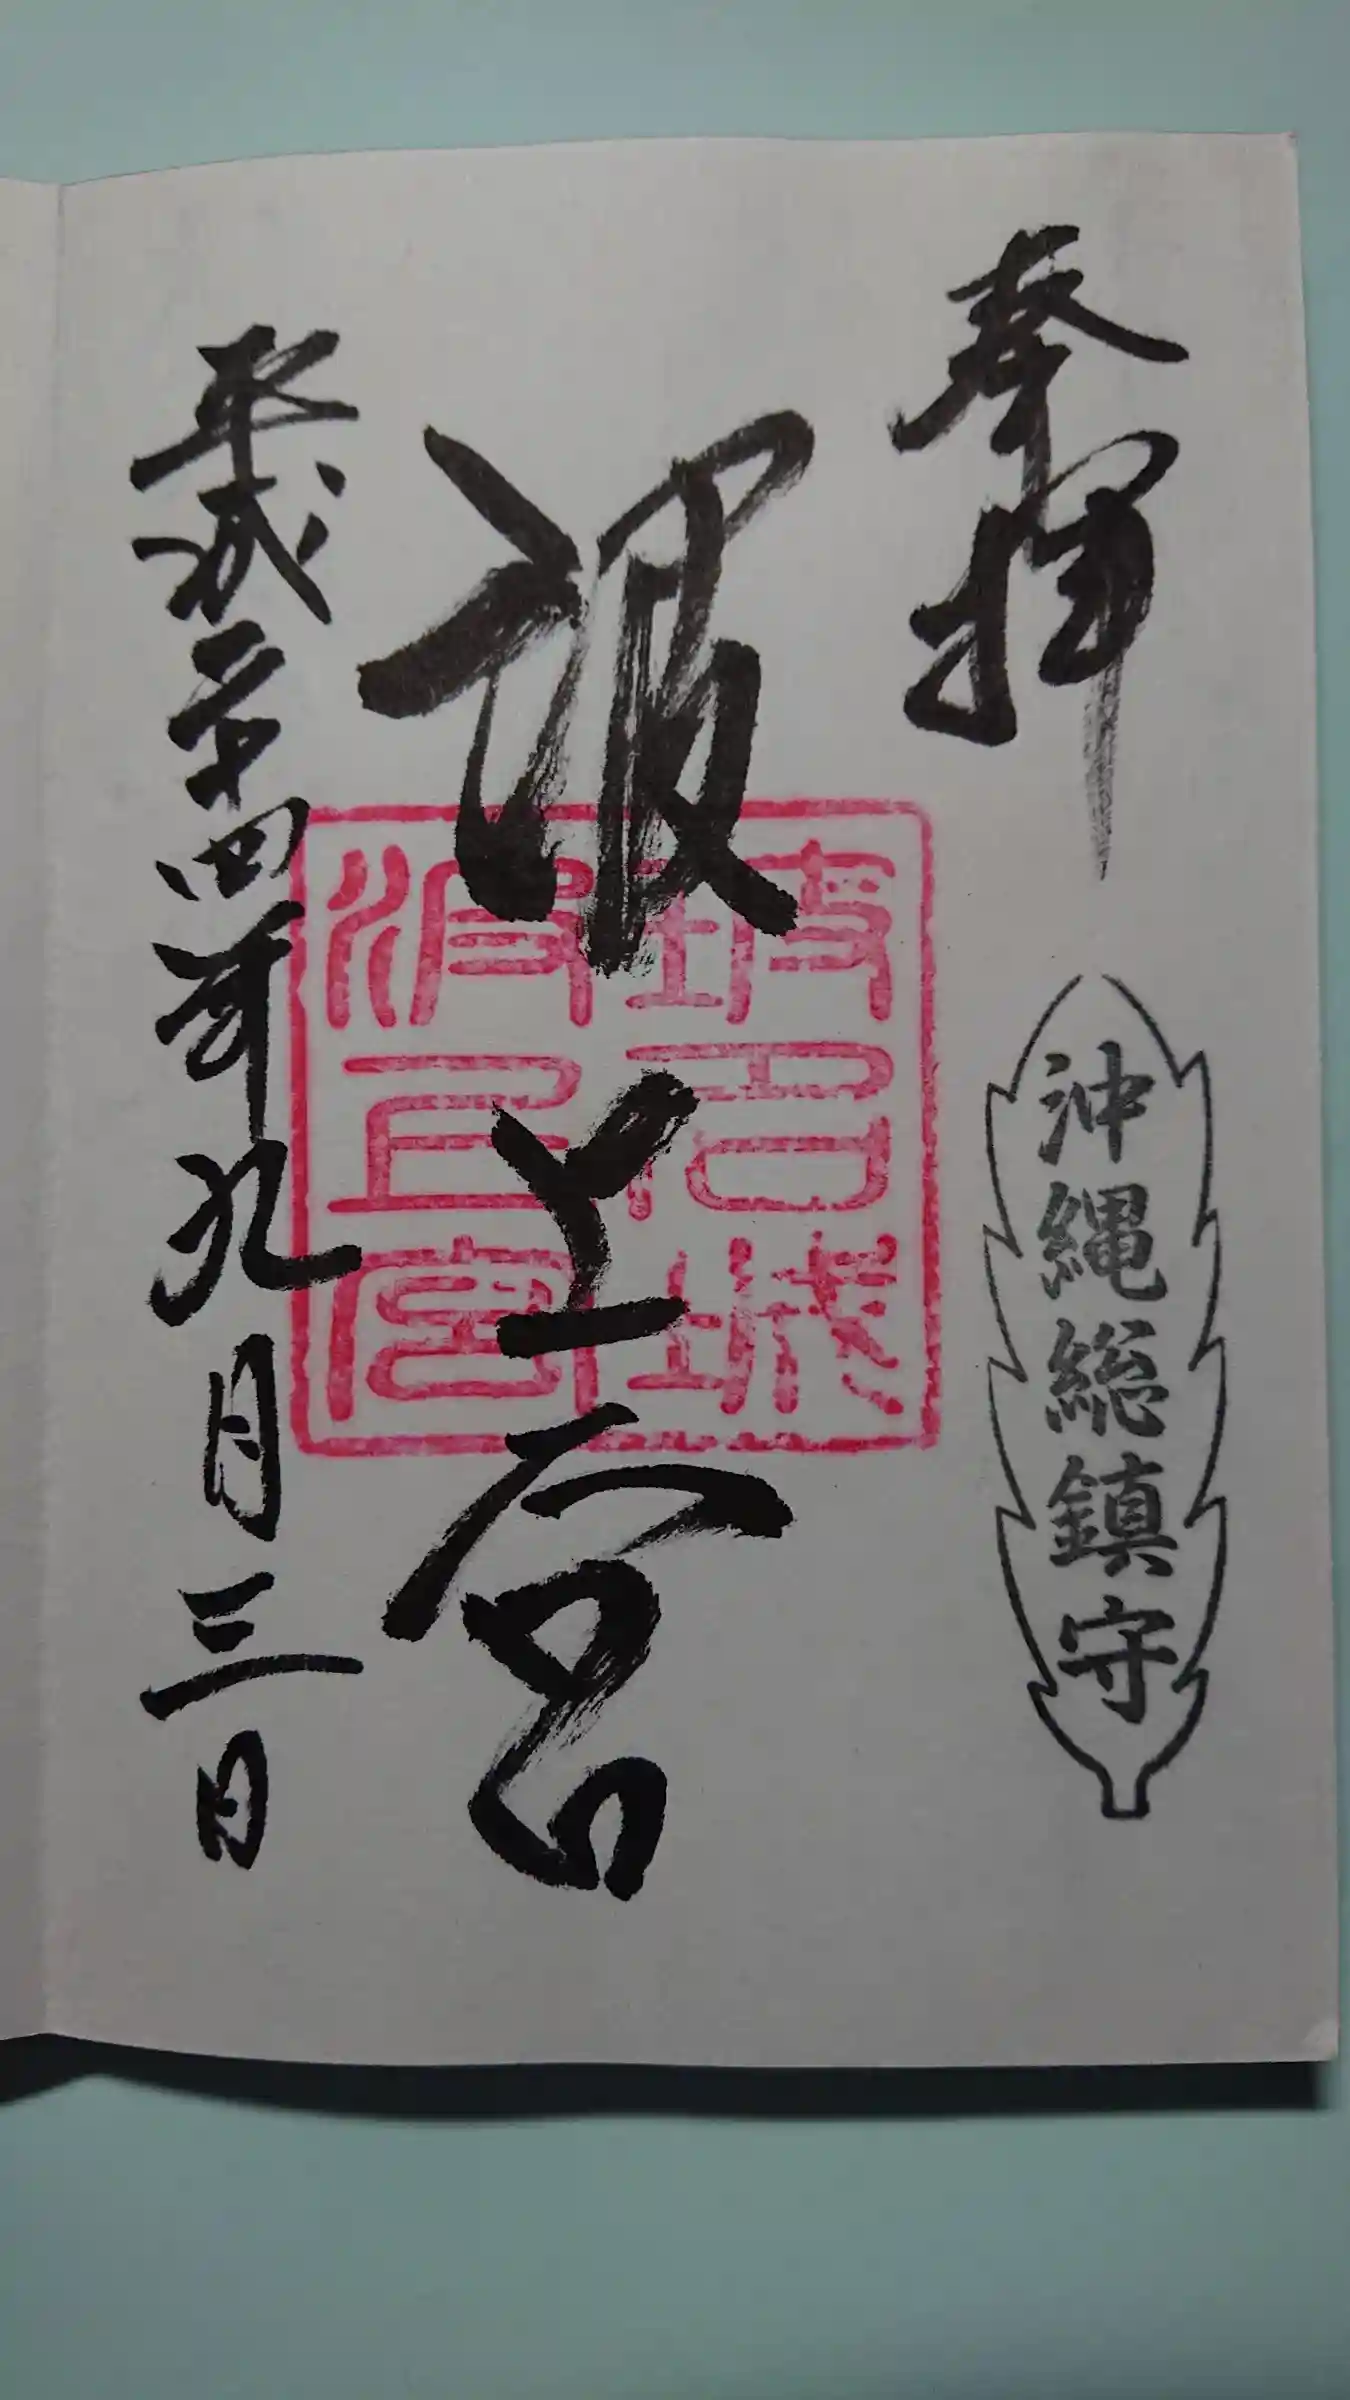 奉拝
沖縄総鎮守
波上宮
坡名城
波上宮
平成二十四年九月三日